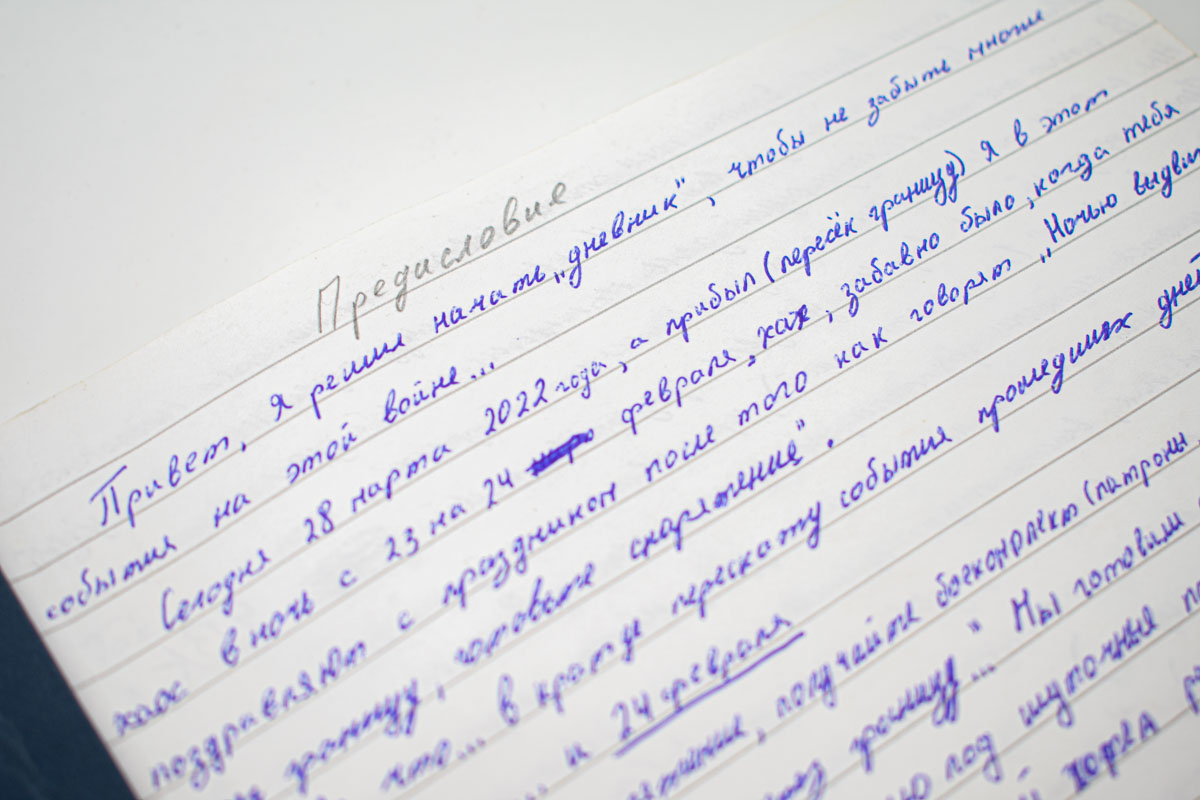 Предисловие
Привет, я решил начать „дневник", чтобы не забыть многие
события на этой войне...
Сегодня 28 марта 2022 года, а прибыл (пересёк границу) я в этот
хаос в ночь с 23 на 24 февраля, хах, забавно было, когда тебя
поздравляют с праздником после того как говорят „Ночью
границу, готовьте снаряжение".
что... в кратце перескажу события прошедших дней
24 февраля
получайте боекомплект (патроны,
границу..." Мы готовили
под шуточные